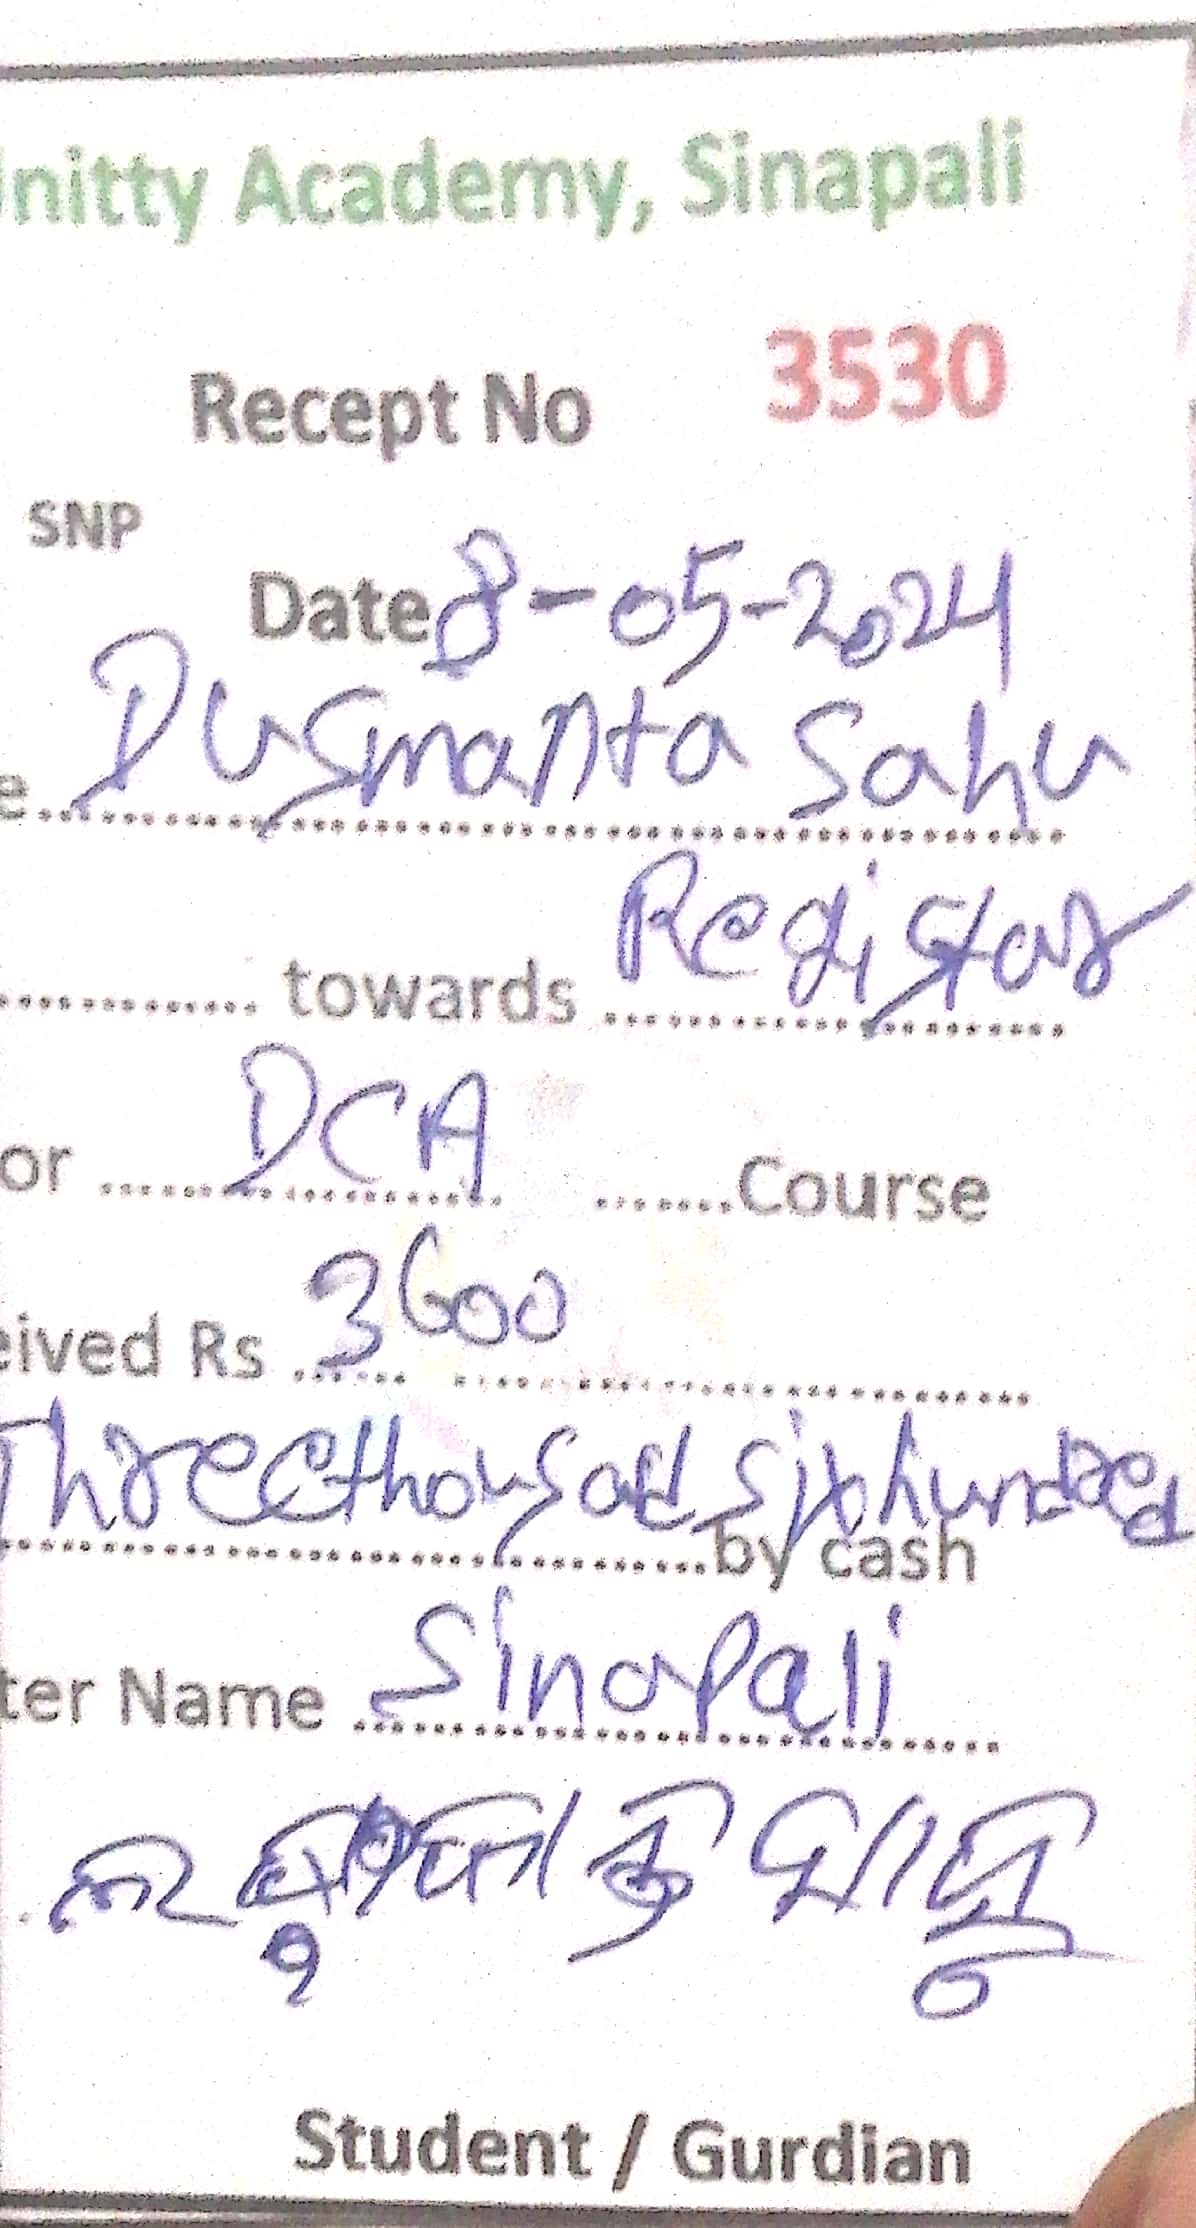 nitty Academy, Sinapali
Recept No 3530
SNP
Date 8-05-2024
e Dusmanta Sahu
towards Registar
or DCA Course
eived Rs 3600
Threethousad sixhundred
by cash
ter Name Sinapali
ସାହୁ
Student / Gurdian